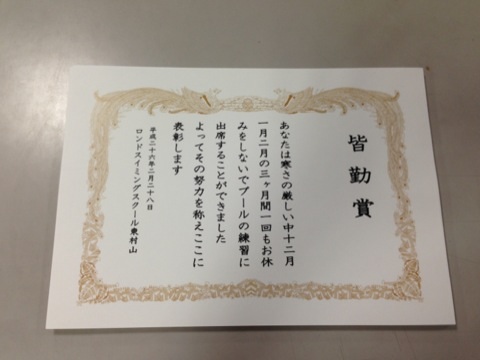 皆勤賞
あなたは寒さの厳しい中十二月
一月二月の三ヶ月間一回もお休
みをしないでプールの練習に
出席することができました
よってその努力を称えここに
表彰します
平成二十六年二月二十八日
ロンドスイミングスクール東村山